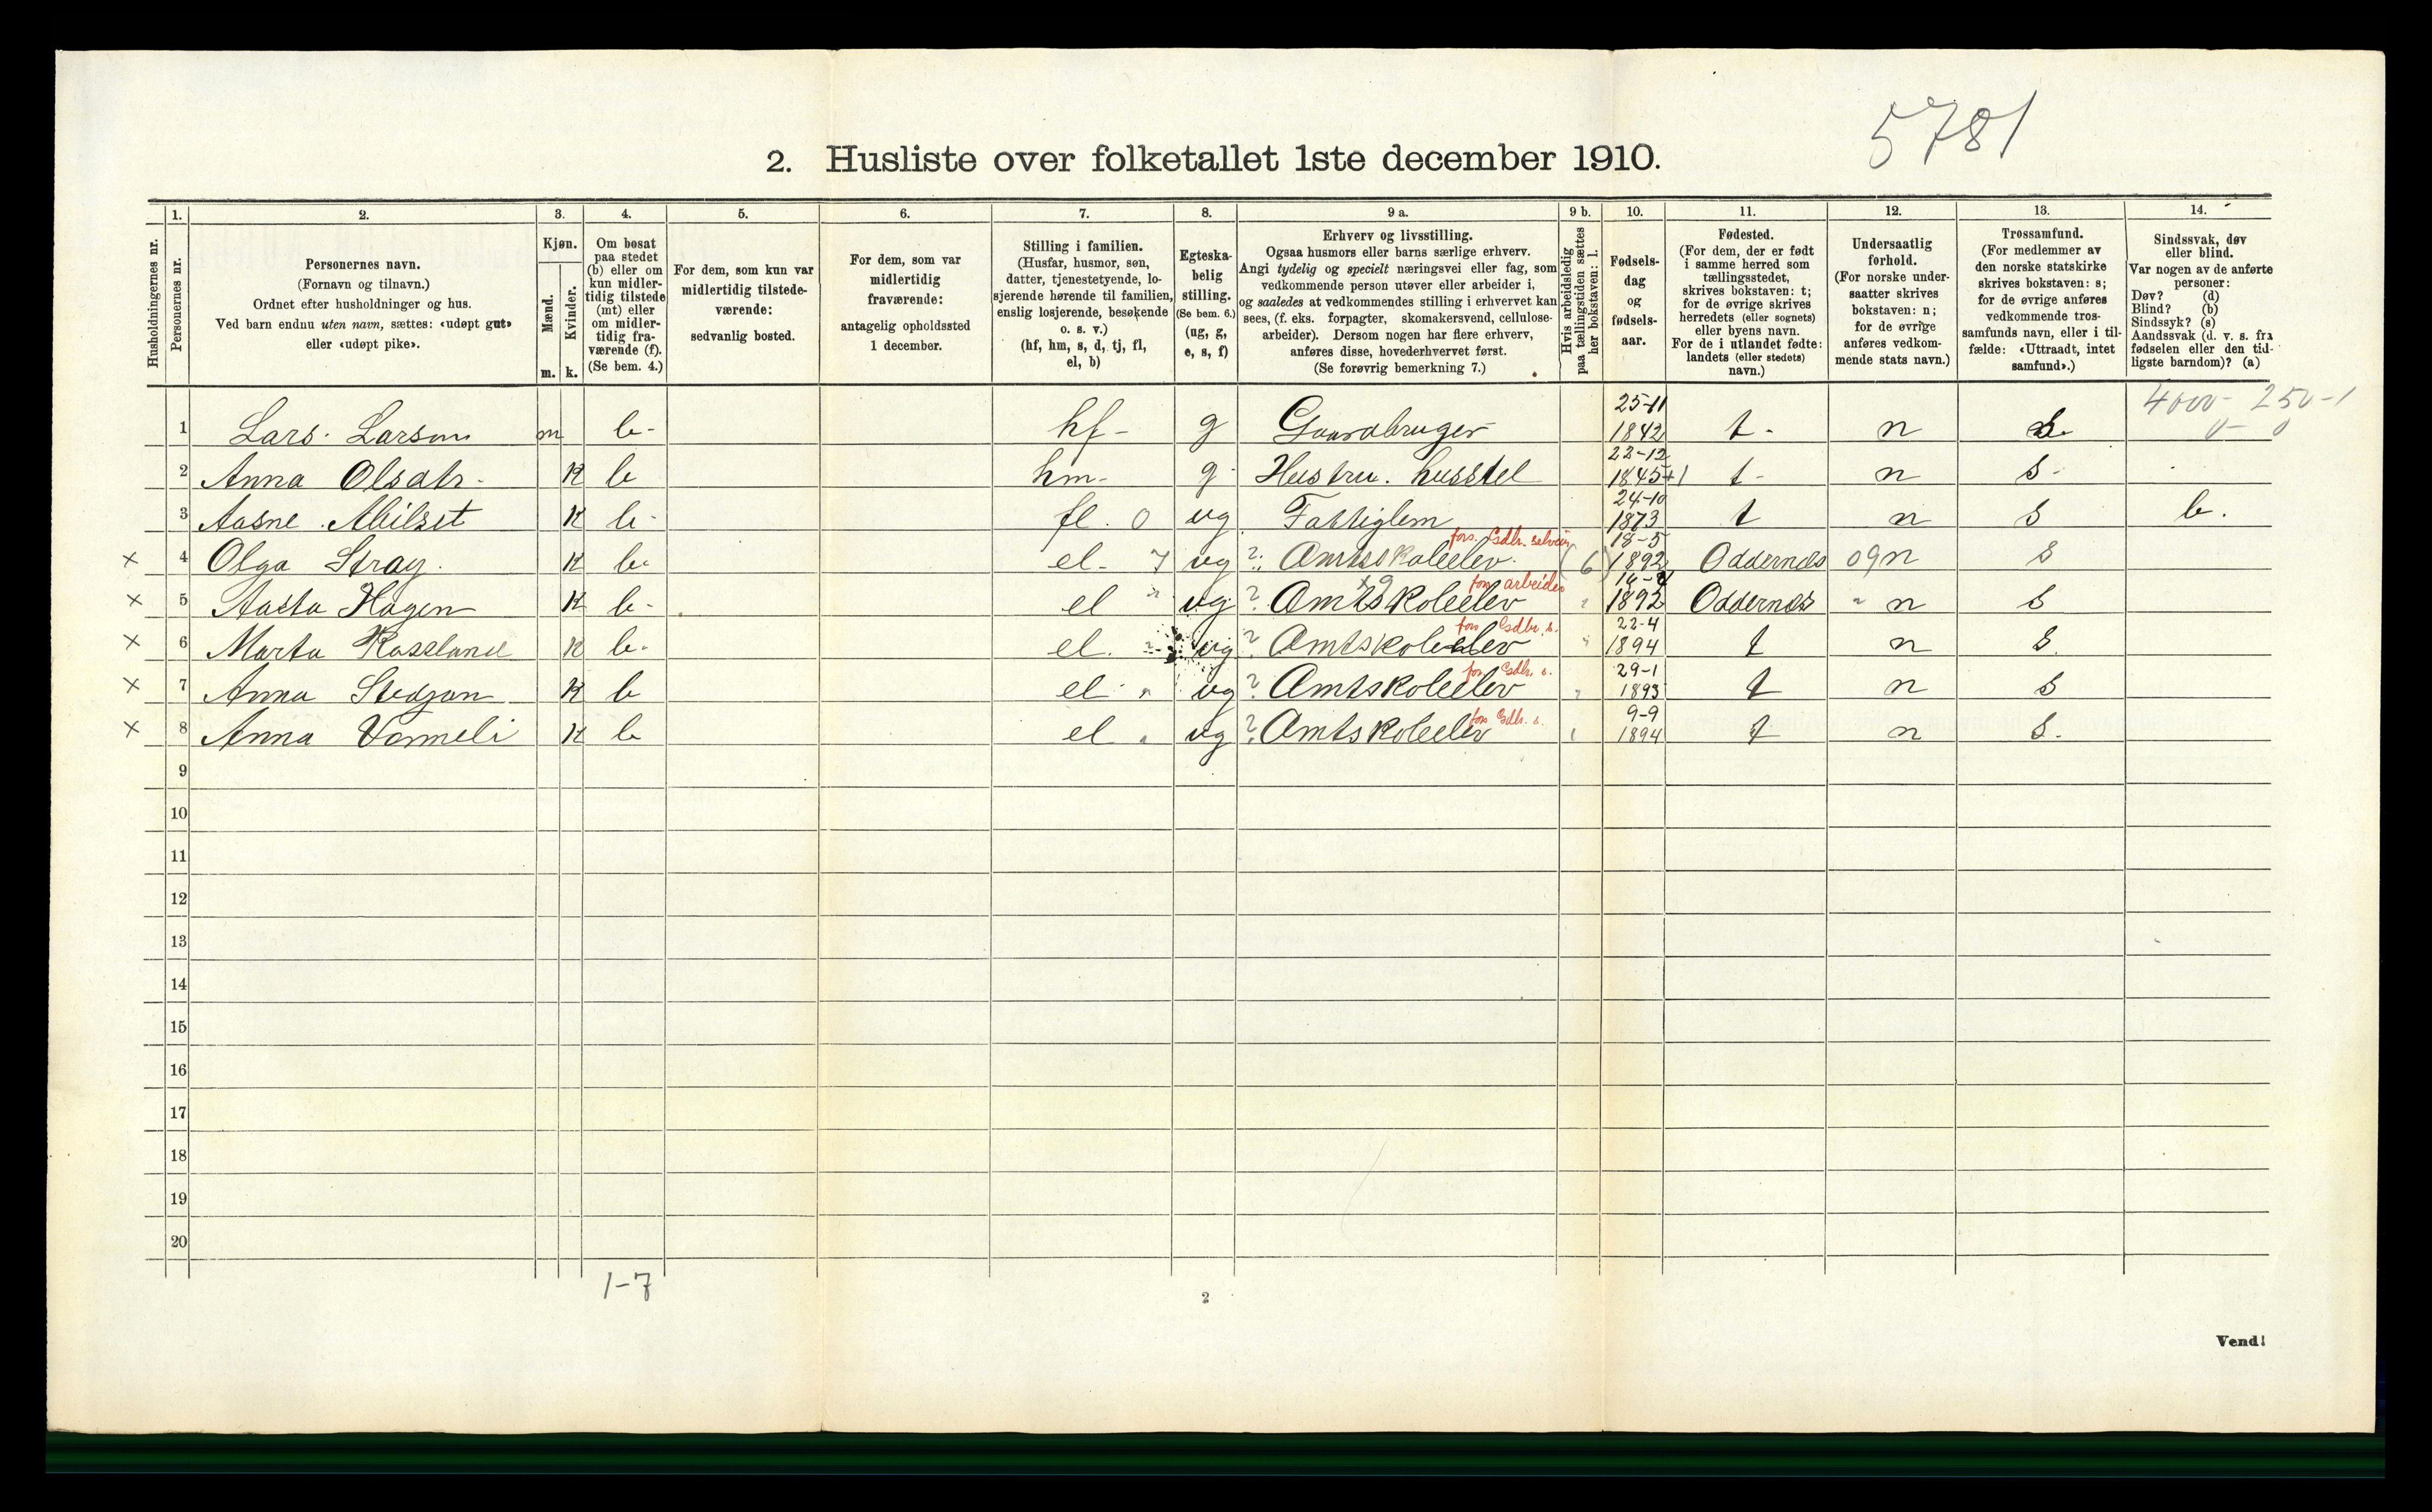 5781
2. Husliste over folketallet 1ste december 1910.
Husholdningernes nr.
1. Personernes nr.
2. Personernes navn.
(Fornavn og tilnavn.)
Ordnet efter husholdninger og hus.
Ved barn endnu uten navn, sættes: «udøpt gut»
eller «udøpt pike».
3. Kjøn.
Mænd. m.
Kvinder. k.
4. Om bosat
paa stedet
(b) eller om
kun midler-
tidig tilstede
(mt) eller
om midler-
tidig fra-
værende (f).
(Se bem. 4.)
5. For dem, som kun var
midlertidig tilstede-
værende:
sedvanlig bosted.
6. For dem, som var
midlertidig
fraværende:
antagelig opholdssted
1 december.
7. Stilling i familien.
(Husfar, husmor, søn,
datter, tjenestetyende, lo-
sjerende hørende til familien,
enslig losjerende, besøkende
o. s. v.)
(hf, hm, s, d, tj, fl,
el, b)
8. Egteska-
belig
stilling.
(Se bem. 6.)
(ug, g,
e, s, f)
9 a. Erhverv og livsstilling.
Ogsaa husmors eller barns særlige erhverv.
Angi tydelig og specielt næringsvei eller fag, som
vedkommende person utøver eller arbeider i,
og saaledes at vedkommendes stilling i erhvervet kan
sees, (f. eks. forpagter, skomakersvend, cellulose-
arbeider). Dersom nogen har flere erhverv,
anføres disse, hovederhvervet først.
(Se forøvrig bemerkning 7.)
9 b. Hvis arbeidsledig
paa tællingstiden sættes
her bokstaven: l.
10. Fødsels-
dag
og
fødsels-
aar.
11. Fødested.
(For dem, der er født
i samme herred som
tællingsstedet,
skrives bokstaven: t;
for de øvrige skrives
herredets (eller sognets)
eller byens navn.
For de i utlandet fødte:
landets (eller stedets)
navn.)
12. Undersaatlig
forhold.
(For norske under-
saatter skrives
bokstaven: n;
for de øvrige
anføres vedkom-
mende stats navn.)
13. Trossamfund.
(For medlemmer av
den norske statskirke
skrives bokstaven: s;
for de øvrige anføres
vedkommende tros-
samfunds navn, eller i til-
fælde: «Uttraadt, intet
samfund».)
14. Sindssvak, døv
eller blind.
Var nogen av de anførte
personer:
Døv? (d)
Blind? (b)
Sindssyk? (s)
Aandssvak (d. v. s. fra
fødselen eller den tid-
ligste barndom)? (a)
4000- 250-1
0- 0
1 Lars Larson m b- hf- g Gaardbruger 25-11 1842 t- n s.
2 Anna Olsdtr. k b hm- g Hustru. husstel 22-12 1845 +1 t- n s-
3 Aasne k b- fl. 0 ug Fattiglem 24-10 1873 t n s b.
x 4 Olga Stray. k b- el- 7 ug ? Amtskoleelev. fors. Gdbr. selveier (6) 18-5 1892 Oddernes 09 n s
x 5 Aasta Hagen k b- el " ug ? Amtskoleelev fors arbeider " 1892 Oddernes " n s
x 6 Marta Rossland k b- el. " ug ? Amtskoleelev fors Gdbr. s. " 22-4 1894 t n s.
x 7 Anna Stedjan k b el " ug ? Amtskoleelev fors Gdbr. s. " 29-1 1893 t n s
x 8 Anna Vormeli k b el " ug ? Amtskoleelev fors Gdbr. s. 9-9 1894 t n s.
9
10
11
12
13
14
15
16
17
18
19
20
1-7
2
Vend!